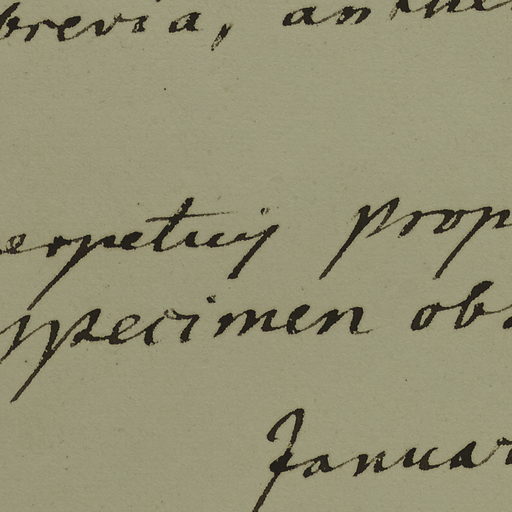 brevia, anthe
erpetuis prop
specimen obs
Januar